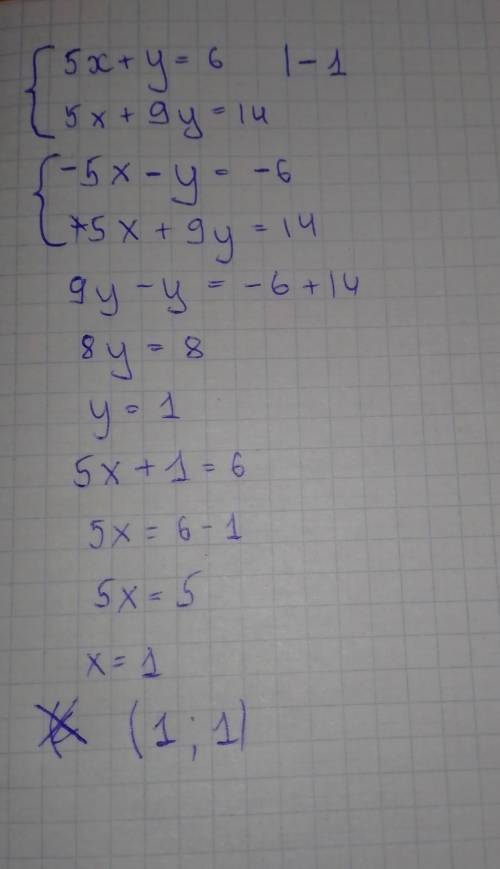 5x + y = 6 | - 1
5x + 9y = 14
-5x - y = -6
5x + 9y = 14
9y - y = -6 + 14
8y = 8
y = 1
5x + 1 = 6
5x = 6 - 1
5x = 5
x = 1
(1 ; 1)